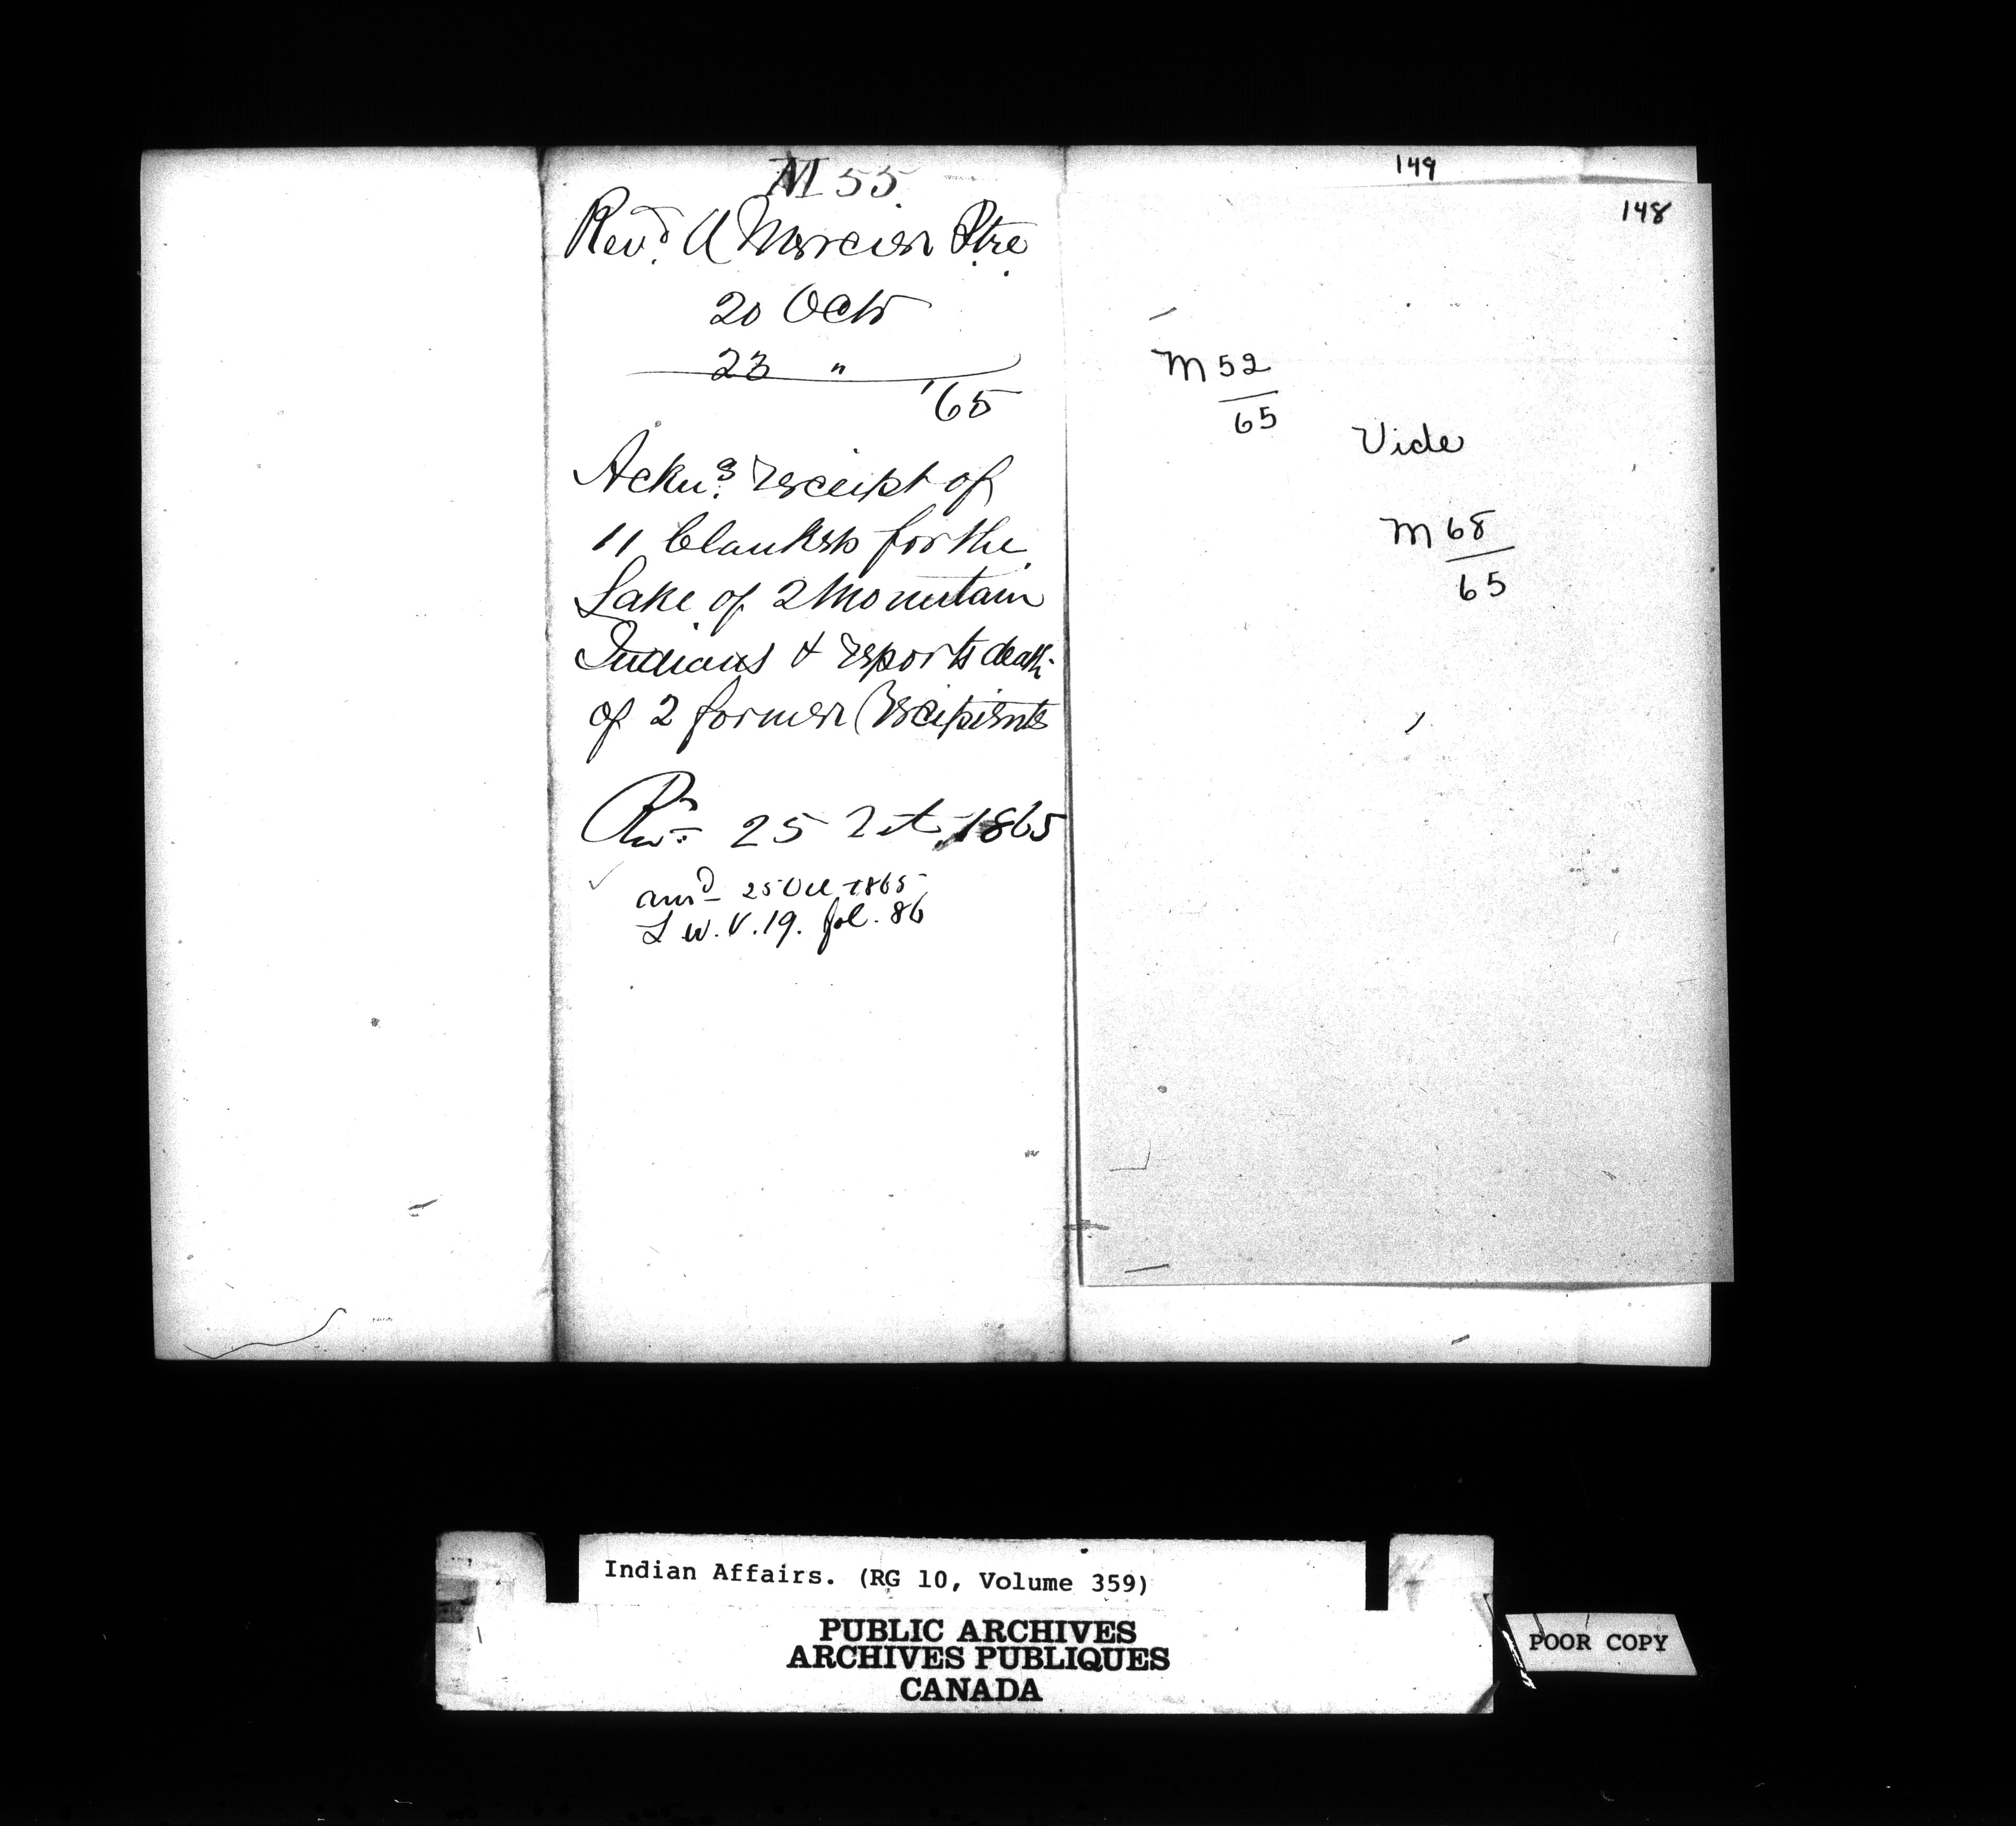 M 55.
Revd. A Mercier Ptre.
20 Octr
23 "
'65
Ackns. receipt of
11 blankets for the
Lake of 2 Mountain
Indians & reports death
of 2 former Recipients
25 Oct. 1865
25 Oct 1865
L W. V. 19. fol. 86
149
148
M 52
65
Vide
M 68
65
Indian Affairs. (RG 10, Volume 359)
PUBLIC ARCHIVES
ARCHIVES PUBLIQUES
CANADA
POOR COPY